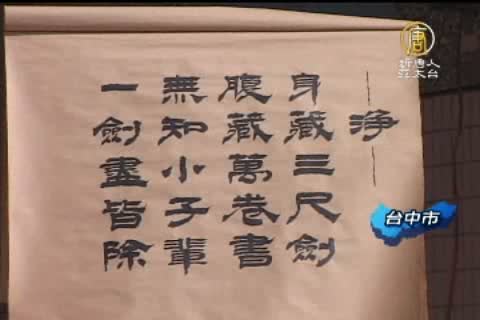 淨
身藏三尺劍
腹藏萬卷書
無知小子輩
一劍盡皆除
唐
新唐人
亞太台
台中市